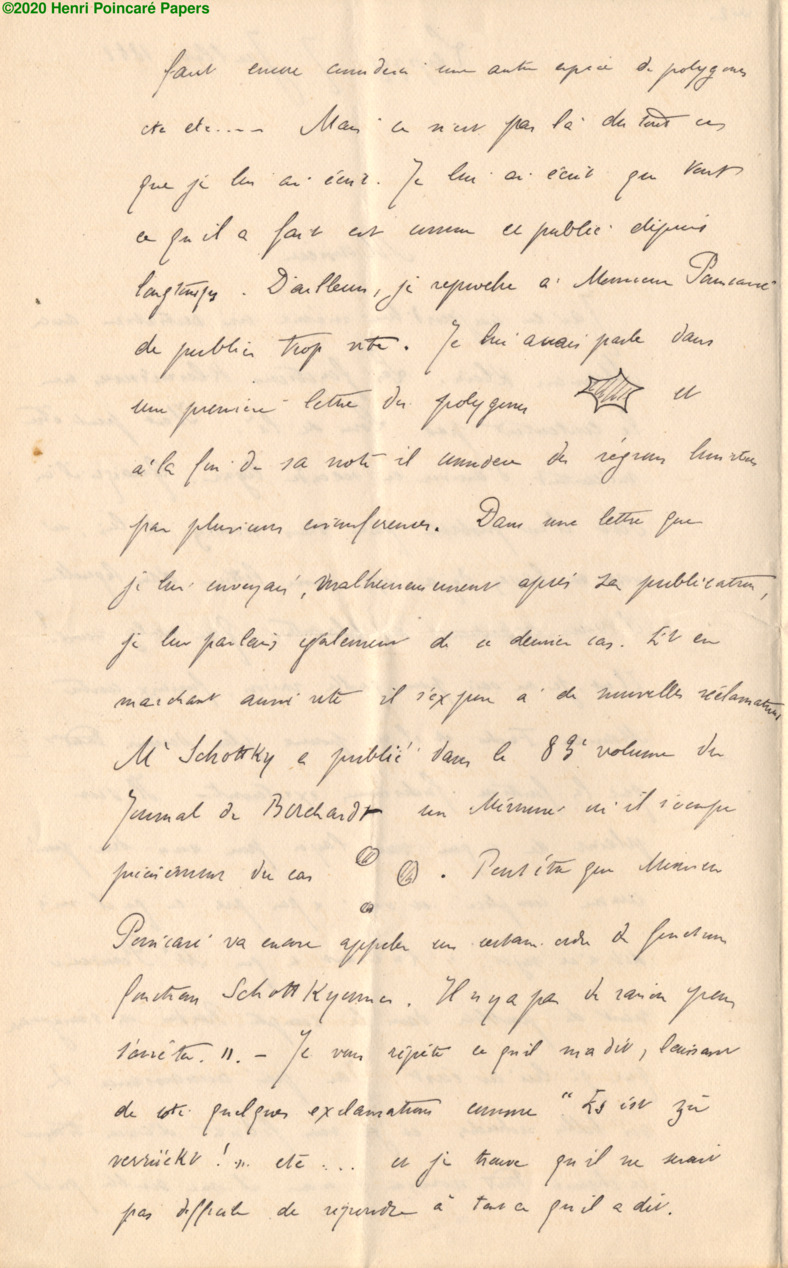 ©2020 Henri Poincaré Papers
faut encore considérer une autre espèce de polygones
etc etc.... Mais ce n'est pas là du tout ce
que je lui ai écrit. Je lui ai écrit que tout
ce qu'il a fait est connu et publié depuis
longtemps. D'ailleurs, je reproche à Monsieur Poincaré
de publier trop vite. Je lui avais parlé dans
une première lettre des polygones et
à la fin de sa note il considère des régions limitées
par plusieurs circonférences. Dans une lettre que
je lui envoyai, malheureusement après sa publication,
je lui parlais également de ce dernier cas. Et en
marchant aussi vite il s'expose à de nouvelles réclamations
Mr Schottky a publié dans le 83e volume du
Journal de Borchardt un Mémoire où il s'occupe
précisément du cas . Peut être que Monsieur
Poincaré va encore appeler un certain ordre de fonctions
fonctions Schottkyennes. Il n'y a pas de raison pour
s'arrêter. ". – Je vous répète ce qu'il m'a dit, laissant
de côté quelques exclamations comme "Es ist zü
verrückt!" etc ... et je trouve qu'il ne serait
pas difficile de répondre à tout ce qu'il a dit.